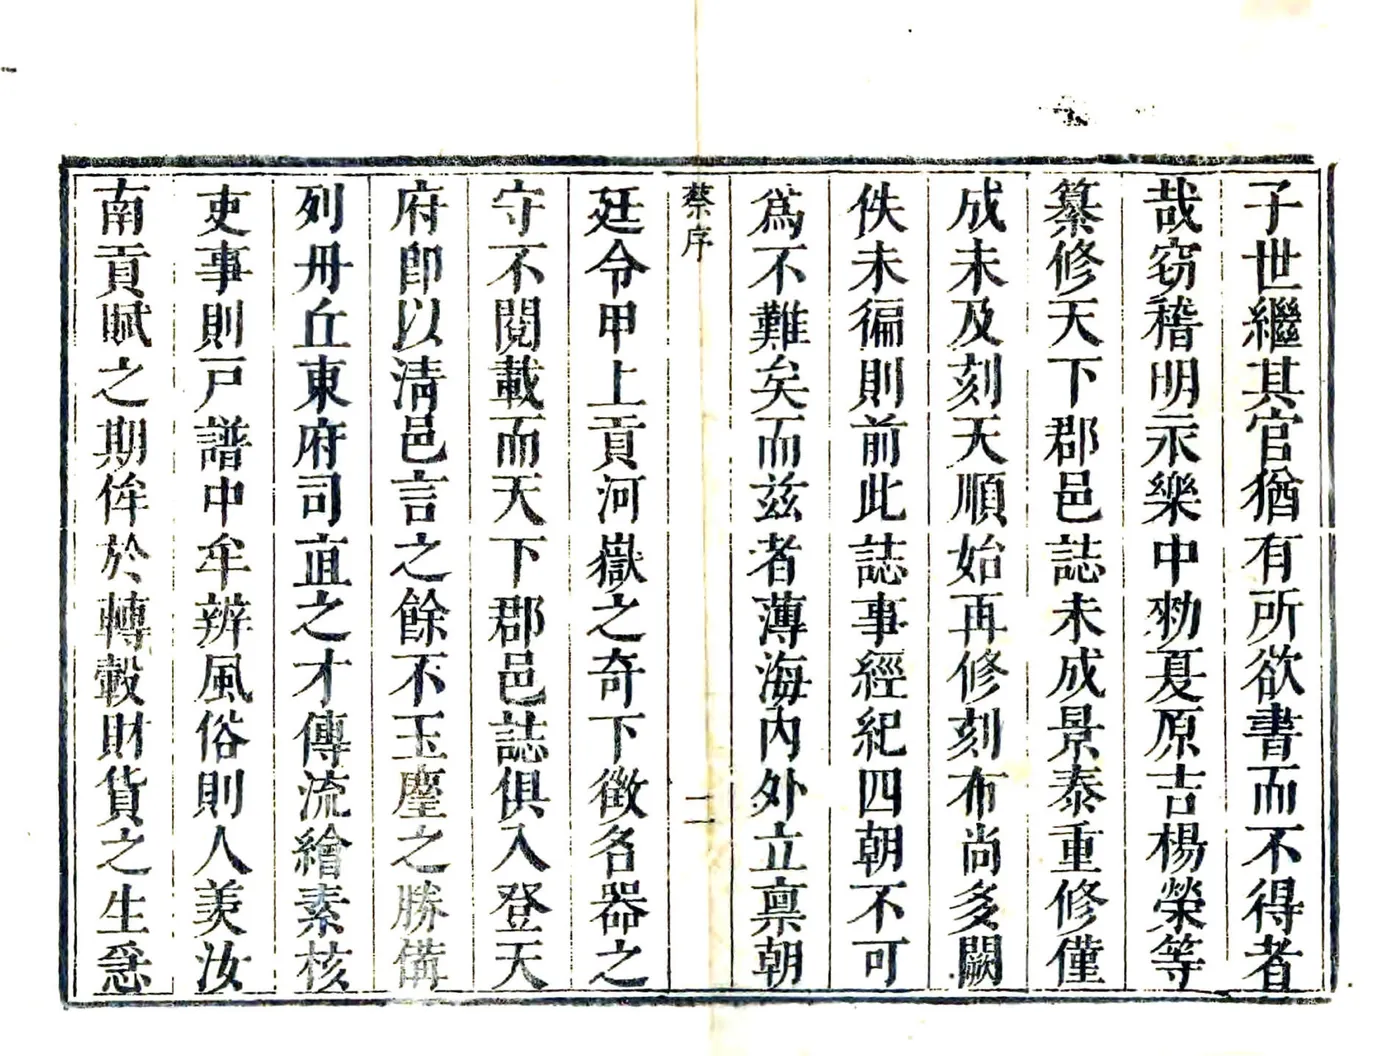 子世繼其官猶有所欲書而不得者
哉窃稽明永樂中勑夏原吉楊榮等
纂修天下郡邑誌未成景泰重修僅
成未及刻天順始再修刻布尚多闕
佚未徧則前此誌事經紀四朝不可
為不難矣而兹者薄海內外立禀朝
蔡序
二
廷令甲上貢河嶽之奇下徵名器之
守不閱載而天下郡邑誌俱入登天
府卽以清邑言之餘不玉麈之勝備
列丹丘東府司直之才傳流繪素核
吏事則戸譜中牟辨風俗則人羙汝
南貢賦之期侔於轉轂財貨之生